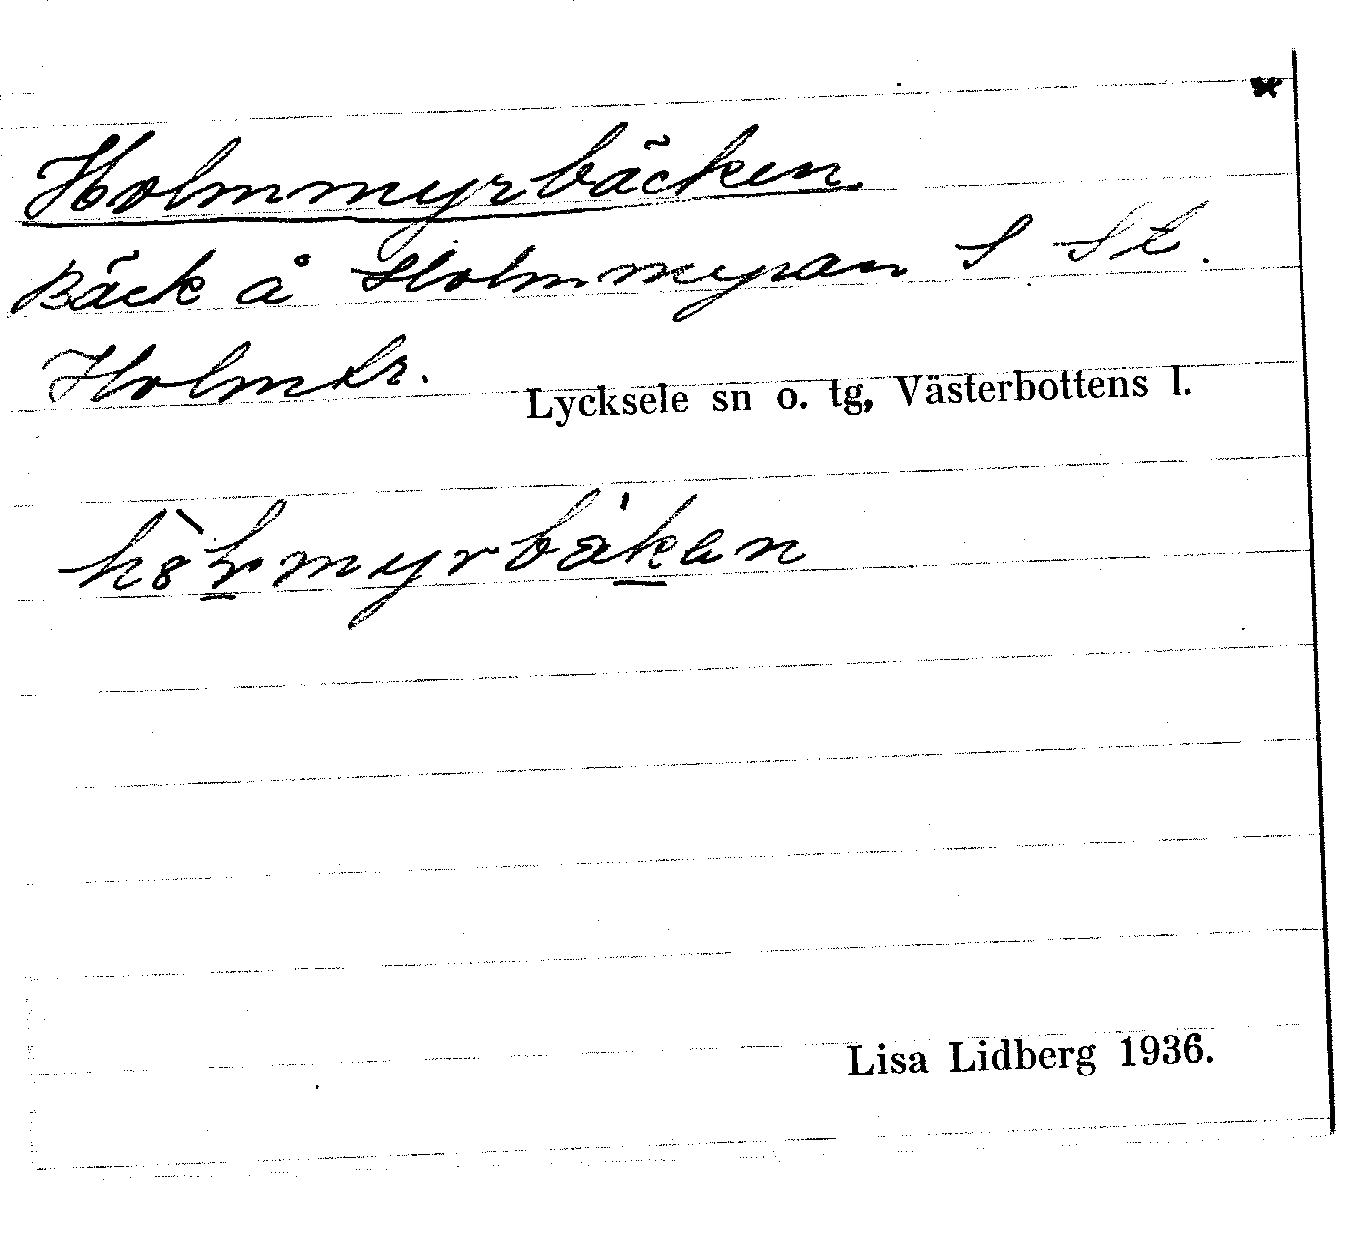 Holmmyrbäcken.
Bäck å Holmmyran S St.
Holmtr.
Lycksele sn o. tg, Västerbottens l.
Lisa Lidberg 1936.